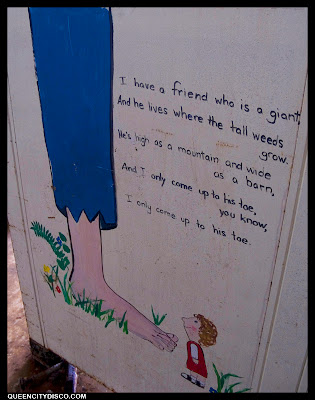 I have a friend who is a giant,
And he lives where the tall weeds
grow.
He's high as a mountain and wide
as a barn,
And I only come up to his toe,
you know,
I only come up to his toe.
QUEENCITYDISCO.COM